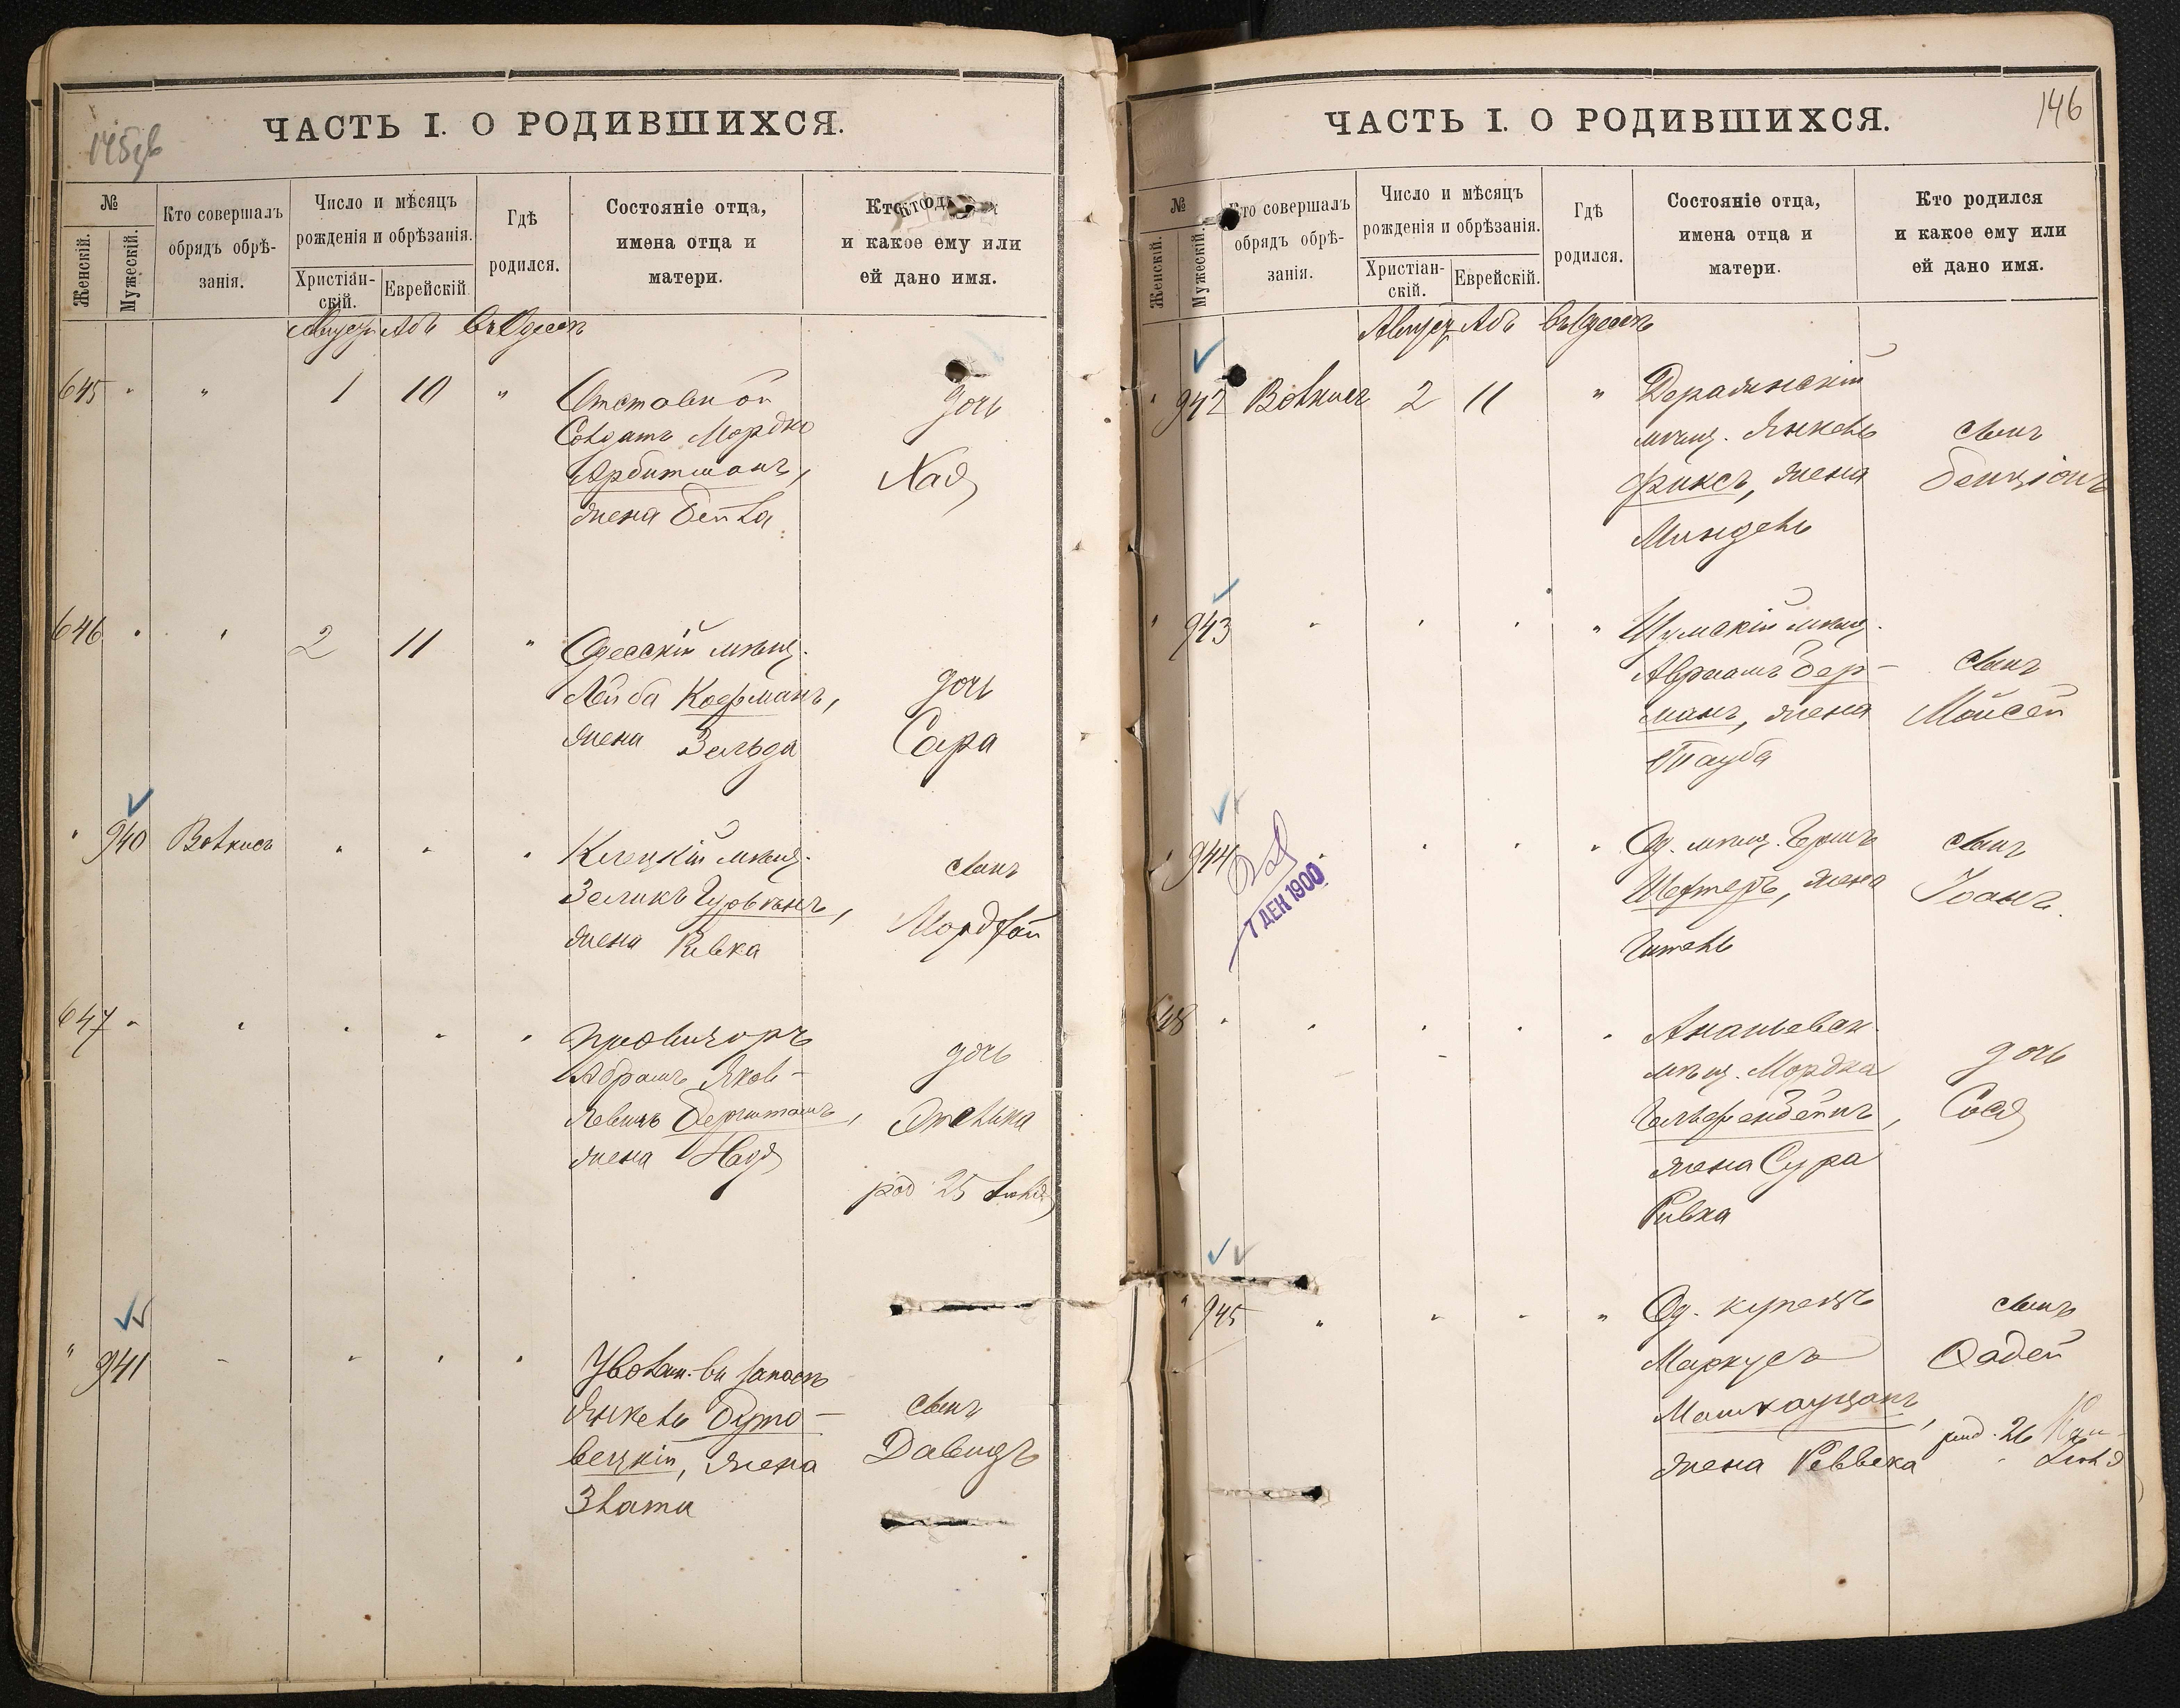 145об
ЧАСТЬ I. О РОДИВШИХСЯ.
№
Женскій.
Мужескій.
Кто совершалъ
обрядъ обрѣ-
занія.
Число и мѣсяцъ
рожденія и обрѣзанія.
Христіан-
скій.
Еврейскій.
Гдѣ
родился.
Состояніе отца,
имена отца и
матери.
и какое ему или
ей дано имя.
Августъ Абъ въ Одессѣ
645 " " 1 10 " Отставной
Солдатъ Мордко
Арбитманъ,
жена Бейла
дочь
Хая
646 " " 2 11 " Одесскій мѣщ.
Лейба Кофманъ,
жена Зельда
дочь
Сара
" 940 Волкисъ " " " Клецкій мѣщ.
Зеликъ Гуревичъ,
жена Ривка
сынъ
Мордхай
647 " " " " " Провизоръ
Абрамъ Яков-
левичъ Бернштамъ,
жена Надя
дочь
род 25 Іюля
" 941 " " " " Уволен. въ запасъ
Янкель Буто-
вецкій, жена
Злата
сынъ
Давидъ
146
ЧАСТЬ I. О РОДИВШИХСЯ.
№
Женскій.
Мужескій.
Кто совершалъ
обрядъ обрѣ-
занія.
Число и мѣсяцъ
рожденія и обрѣзанія.
Христіан-
скій.
Еврейскій.
Гдѣ
родился.
Состояніе отца,
имена отца и
матери.
Кто родился
и какое ему или
ей дано имя.
Августъ Абъ въ Одессѣ
" 942 Волкисъ 2 11 " Деражнскій
мѣщ. Янкель
Фуксъ, жена
Миндель
сынъ
Бенціонъ
" 943 " " " " Шумскій мѣщ.
Авраамъ Бер-
манъ, жена
Тауба
сынъ
Мойсей
" 944 " " " " Од. мѣщ. Гершъ
Шехтеръ, жена
Гитель
сынъ
Іоанъ.
7 ДЕК 1900
648 " " " " " Ананьевск.
мѣщ. Мордка
Гельфендейнъ,
жена Сура
Ривка
дочь
Сося
" 945 " " " " Од. купецъ
Маркусъ
Машкауцанъ,
жена Реввека
сынъ
Фадей
род. 26
Іюля